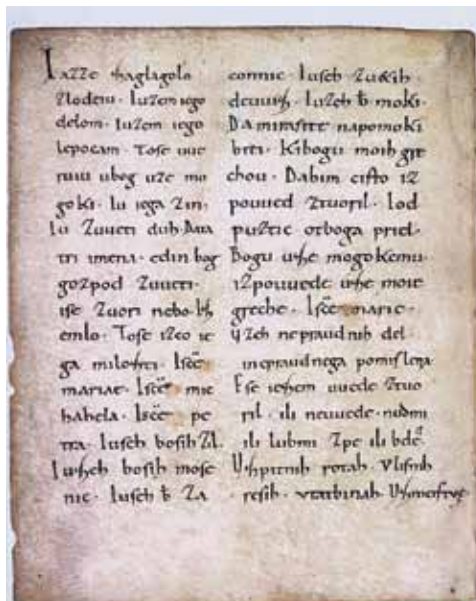 Iazze zaglagolo
zlodeiu · Iuzem iego
delom · Iuzem iego
lepocam · Tose uue
ruiu ubog uze mo
goki · Iu iega zin ·
Iu zuueti duh · Data
tri imena · edin bog
gozpod zuueti ·
ise zuori nebo · Iz
emlo · Tose izco ie
ga milosti · Iscē
mariae · Iscē mic
hahela · Iscē pe
tra · Iuseh bosih zl.
Iuzeh bosih mose
nic · Iuseh b̄ za
connic · Iuseh zuetih
deuuiz · Iuzeh b̄ moki ·
Da mi raste napomoki
biti · Kibogu moih gre
chou · Dabim cisto iz
pouued ztuoril · Iod
puztic otboga priel ·
Bogu uze mogokemu
izpouuede uze moie
greche · Iscē marie ·
Vzeh nepraudnih del ·
inepraudnega pomislena
Ese iezem uuede ztuo
ril · ili neuuede · nudmi
ili lubmi zpe ili bde
Uzpitnih rotah · Vlisnih
resih · vtatbinah ·